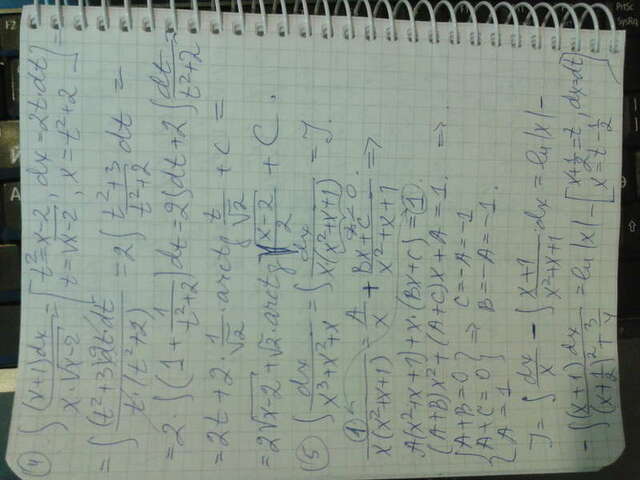 ④ ∫ (x+1)dx / (x·√(x-2)) = [t²=x-2, dx=2t·dt; t=√(x-2), x=t²+2] =
= ∫ (t²+3)·2t·dt / (t·(t²+2)) = 2∫ (t²+3)/(t²+2) dt =
= 2·∫(1 + 1/(t²+2))dt = 2∫dt + 2∫ dt/(t²+2) =
= 2t + 2·1/√2·arctg t/√2 + c =
= 2√(x-2) + √2·arctg√((x-2)/2) + C.
⑤ ∫ dx/(x³+x²+x) = ∫ dx/(x(x²+x+1)) = J.
1/(x(x²+x+1)) = A/x + (Bx+C)/(x²+x+1) =>
A(x²+x+1)+x·(Bx+C)=1
(A+B)x²+(A+C)x+A=1. =>
{A+B=0
{A+C=0 } => C=-A=-1
{A=1 B=-A=-1.
J = ∫ dx/x - ∫ (x+1)/(x²+x+1) dx = ln|x| -
- ∫ (x+1)dx/((x+1/2)²+3/4) = ln|x| - [x+1/2=t, dx=dt; x=t-1/2]
F2
PrtSc
SysRq